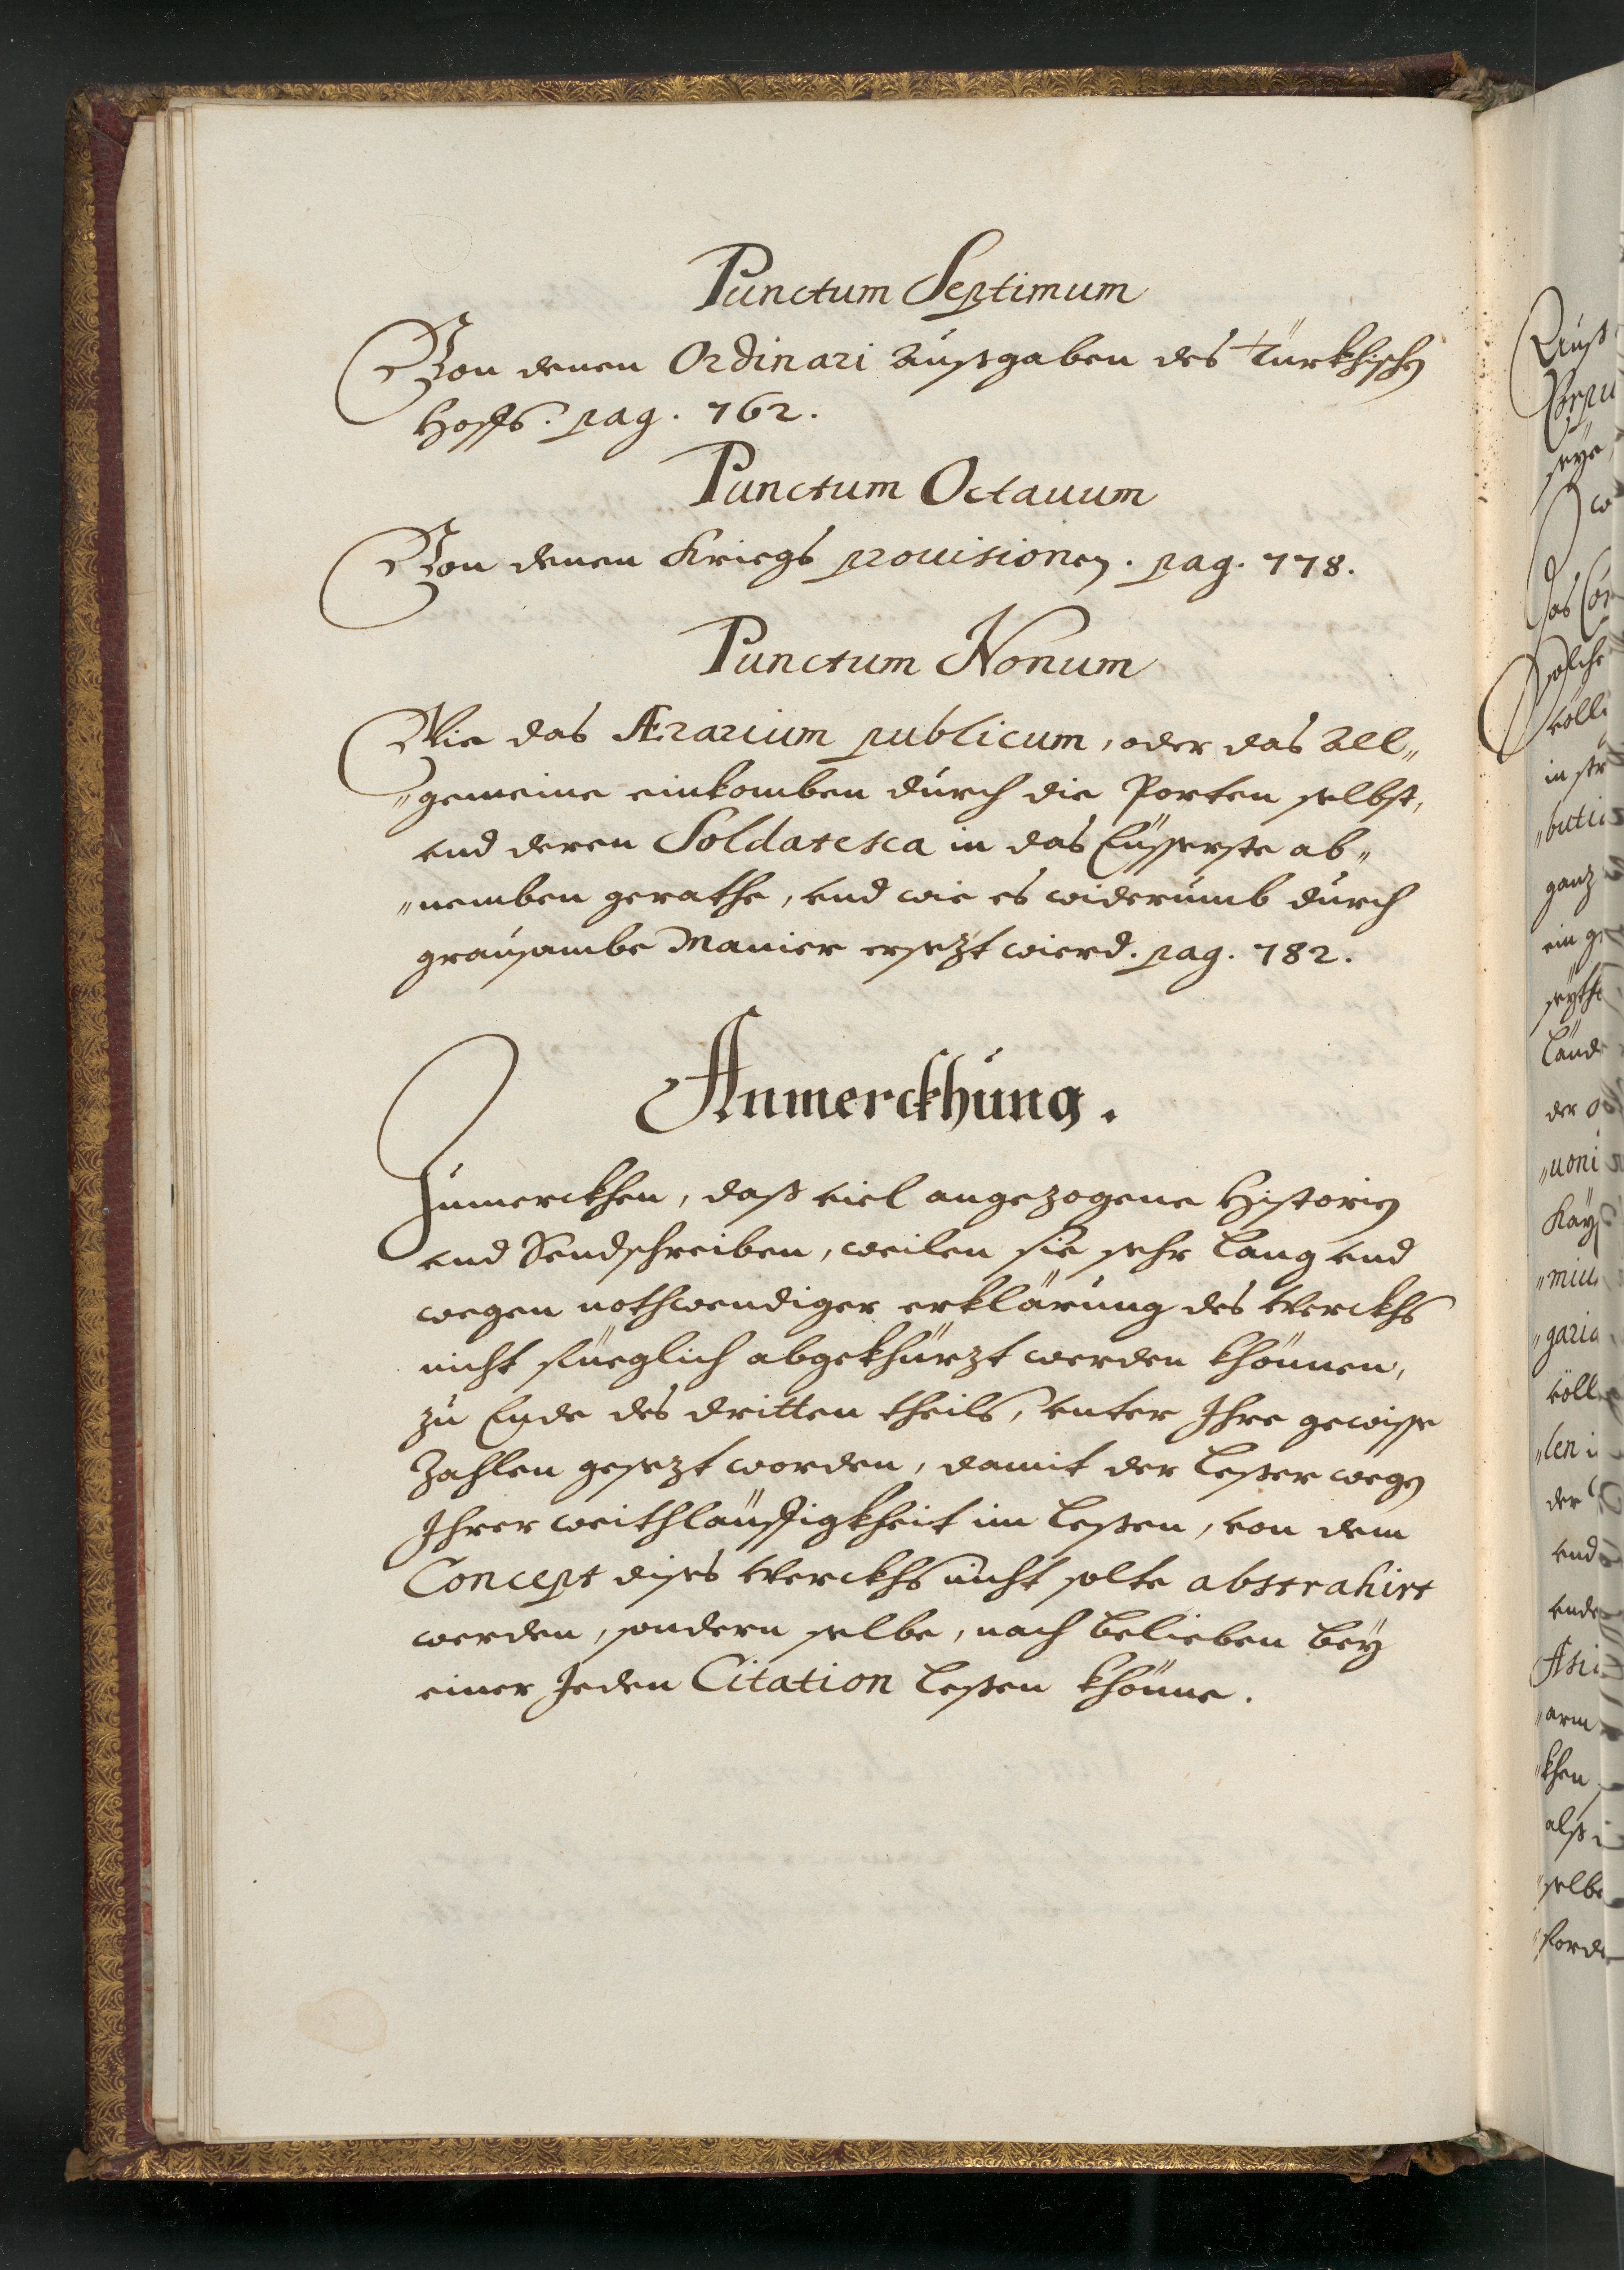 Punctum Septimum
Von denen Ordinari Außgaben des Türkhischen
Hoffs. pag. 762.
Punctum Octauum
Von denen Kriegs prouisionen. pag. 778.
Punctum Nonum
Wie das Ærarium publicum, oder das All„
„gemeine einkomben durch die Porten selbst,
vnd deren Soldatesca in das Eüsserste ab„
„nemben gerathe, vnd wie es widerumb durch
grausambe Manier ersezt wierd. pag. 782.
Anmerckhung.
Zumerckhen, daß viel angezogene Historien
vnd Sendschreiben, weilen sie sehr lang vnd
wegen nothwendiger erklärung des Werckhs
nicht füeglich abgekhürzt werden khönnen,
zu Ende des dritten theils, vnter Ihre gewisse
Zahlen gesezt worden, damit der Leßer wegen
Ihrer weithläuffigkheit im Leßen, von dem
Concept dises Werckhs nicht solte abstrahirt
werden, sondern selbe, nach belieben beÿ
einer Jeden Citation Leßen khönne.